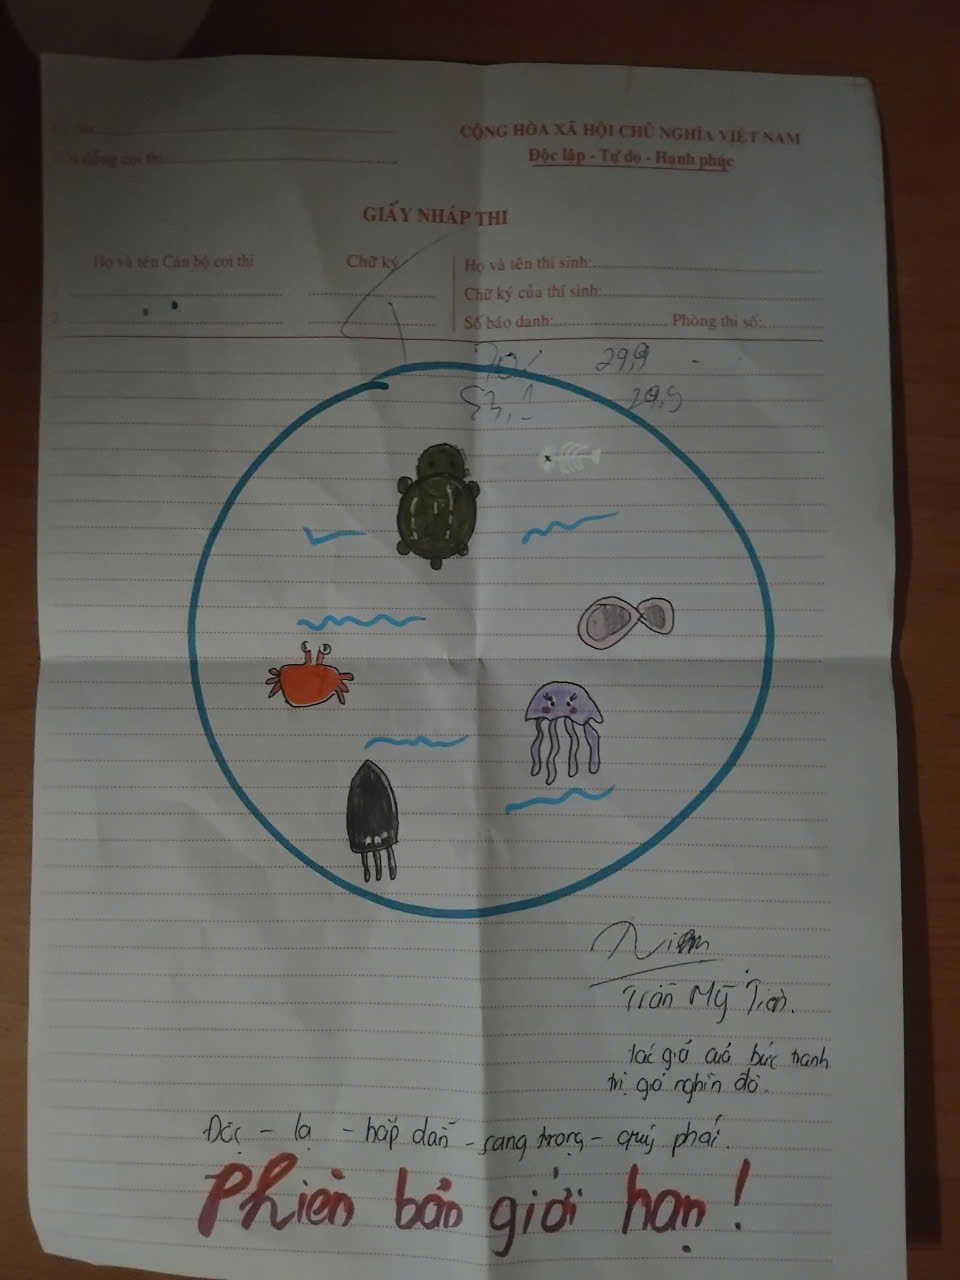 CỘNG HÒA XÃ HỘI CHỦ NGHĨA VIỆT NAM
Độc lập - Tự do - Hạnh phúc
đồng coi thi:
GIẤY NHÁP THI
Họ và tên Cán bộ coi thi
Chữ ký
1
2
Họ và tên thí sinh:
Chữ ký của thí sinh:
Số báo danh: Phòng thi số:
29,9
29,9
Trần Mỹ
tác giả của bức tranh
trị giá nghìn đô.
Độc - lạ - hấp dẫn - sang trọng - quý phái.
Phiên bản giới hạn!